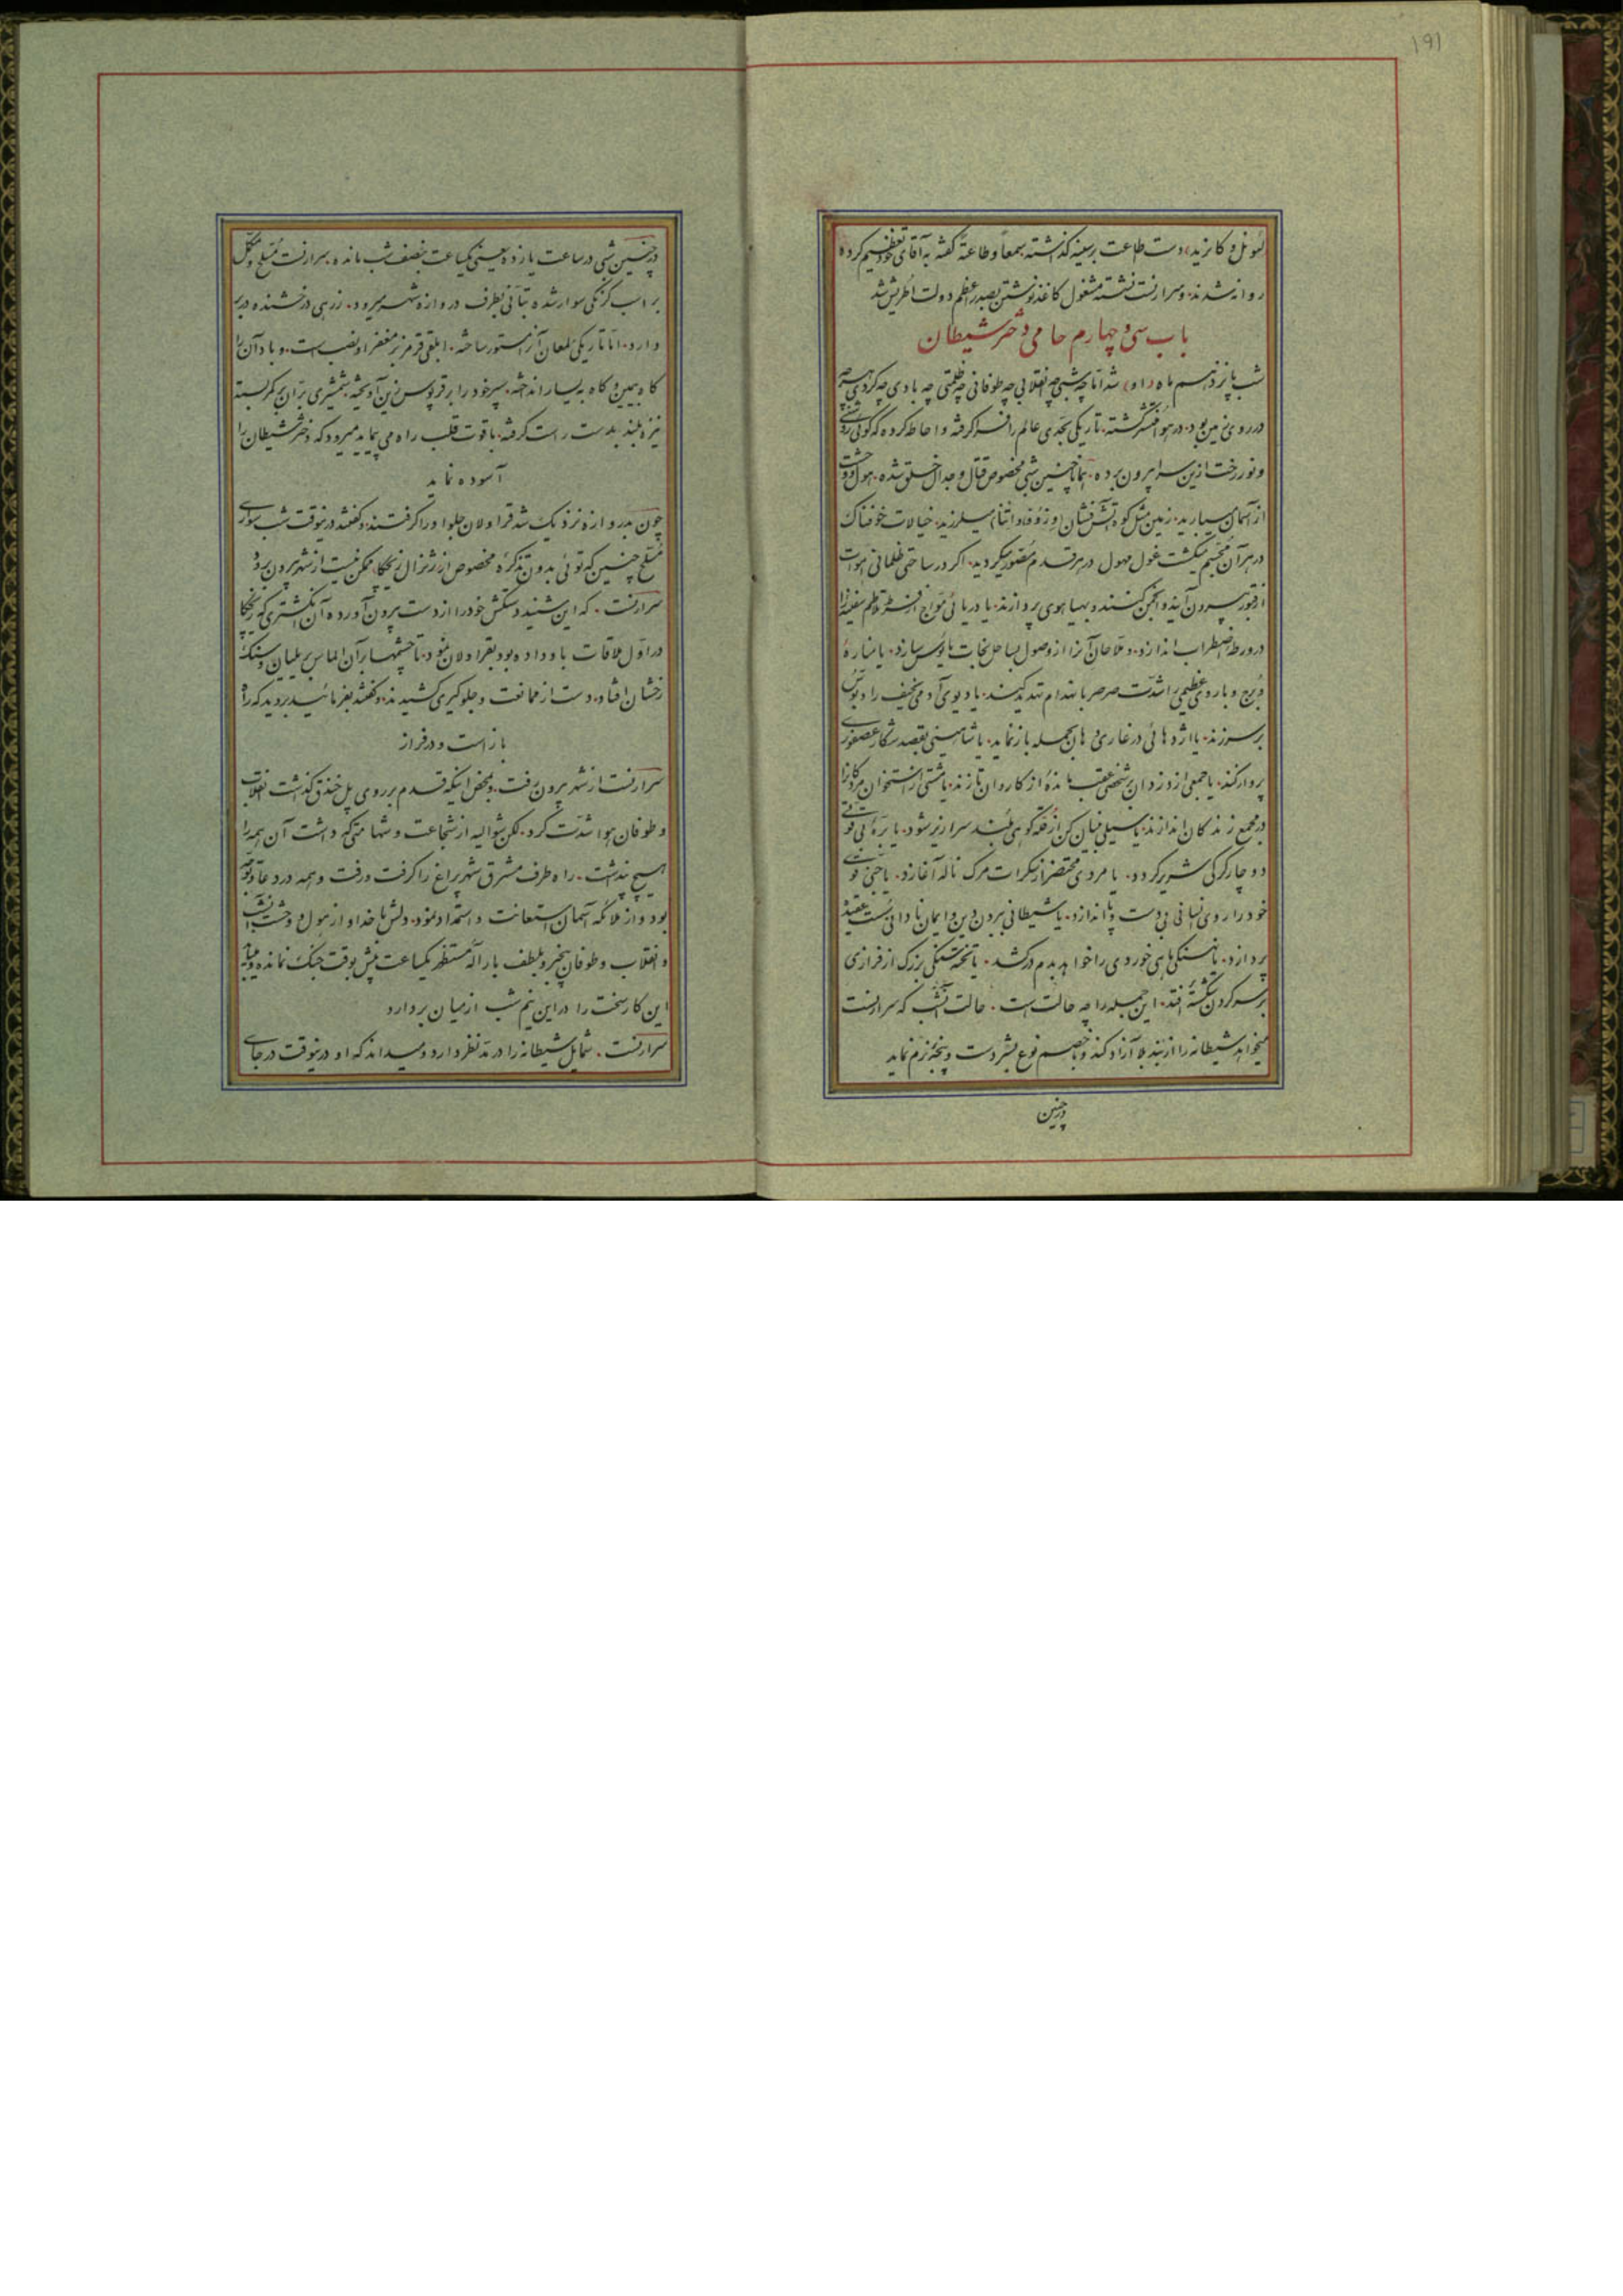 ۱۹۱
لیونل و کانرید، دست طاعت بر سینه گذاشته سمعاً و طاعةً گفته به آقای خود تعظیم کرده
روانه شدند. و سرارنست نشسته مشغول کاغذ نوشتن بصدر اعظم دولت اطریش شد
باب سی و چهارم حامی دختر شیطان
شب پانزدهم ماه (اوت) شد اما چه شبی چه انقلابی چه طوفانی چه ظلمتی چه بادی چه گردی
در روی زمین بود. در هوا منتشر گشته. تاریکی بحدی عالم را فرا گرفته و احاطه کرده که گوئی
و نور رخت ازین سرا بیرون برده. همانا چنین شبی مخصوص قتال و جدال خلق شده. هول و وحشت
از آسمان میبارید. زمین مثل کوه آتش فشان (وزوو و اتنا) میلرزید. خیالات خوفناک
در هر آن مجسم میگشت غول مهول در هر قدم مصور میگردید. اگر در ساحتی ظلمانی اموات
از قبور بیرون آیند و انجمن کنند و بهیاهوی پردازند. یا دریائی مواج از تلاطم سفینه را
در ورطه اضطراب اندازد. و ملاحان آنرا از وصول بساحل نجات مأیوس سازد. یا مناره
و برج و باروی عظیمی را شدت صرصر بانهدام تهدید کند. یا دیوی آدمی نحیف را دبوس
بر سر زند. یا اژدهائی در غاری دهان بحمله باز نماید. یا شاهینی بقصد شکار عصفوری
پرواز کند. یا جمعی از دزدان بر شخص عقب مانده از کاروان تازند. یا مشتی از استخوان مردگان را
در مجمع زندگان اندازند. یا سیلی بنیان کن از قله کوهی بلند سرازیر شود. یا بره بی قوتی
دوچار گرگی شریر گردد. یا مردی محتضر از سکرات مرگ ناله آغازد. یا جنی
خود را روی انسانی بی دست و پا اندازد. یا شیطانی بربودن دین و ایمان نادانی سست عقیده
پردازد. یا نهنگی ماهی خوردی را خواهد بدم درکشد. یا تخته سنگی بزرگ از فرازی
بر سر گردن شکسته افتد. این جمله را چه حالت است. حالت آنشب که سرارنست
میخواهد شیطانه را از بند بلا آزاد کند و با خصم نوع بشر دست و پنجه نرم نماید
در چنین
در چنین شبی در ساعت یازده یعنی یکساعت بنصف شب مانده. سرارنست مسلح و مکمل
بر اسب کرنگی سوار شده بتأنی بطرف دروازه شهر میرود. زرهی درخشنده در بر
دارد. اما تاریکی لمعان آنرا مستور ساخته. ابلقی قرمز بر مغفر او نصب است. و باد آن را
گاه بیمین و گاه به یسار انداخته. سپر خود را بر قرپوس زین آویخته. شمشیری بران بر کمر بسته
نیزه بلند بدست راست گرفته. با قوت قلب راه می پیماید میرود که دختر شیطان را
آسوده نماید
چون بدروازه نزدیک شد قراولان جلو او را گرفتند. و گفتند درینوقت شب سواری
مسلح چنین که توئی بدون تذکره مخصوص از ژنرال زیجکا ممکن نیست از شهر بیرون برود
سرارنست. که این شنید دستکش خود را از دست بیرون آورده آن انگشتری که زیجکا
در اول ملاقات باو داده بود بقراولان نمود. تا چشمها بر آن الماس بریلیان و سنگ
رخشان افتاد. دست از ممانعت و جلوگیری کشیدند. و گفتند بفرمائید بروید که راه
باز است و در فراز
سرارنست از شهر بیرون رفت. بمحض اینکه قدم بر روی پل خندق گذاشت انقلاب
و طوفان هوا شدت کرد. لکن شوالیه از شجاعت و شهامتی که داشت آن همه را
هیچ پنداشت. راه طرف مشرق شهر پراغ را گرفت و رفت و همه در دعا و توجه
بود و از ملائکه آسمان استعانت و استمداد نمود. دلش با خدا و از هول و وحشت آنشب
و انقلاب و طوفان بیخبر و بلطف باراله مستظهر یکساعت بیش بوقت جنگ نمانده و میباید
این کار سخت را در این نیم شب از میان بردارد
سرارنست. شمایل شیطانه را در مد نظر دارد و میداند که او درینوقت در جای